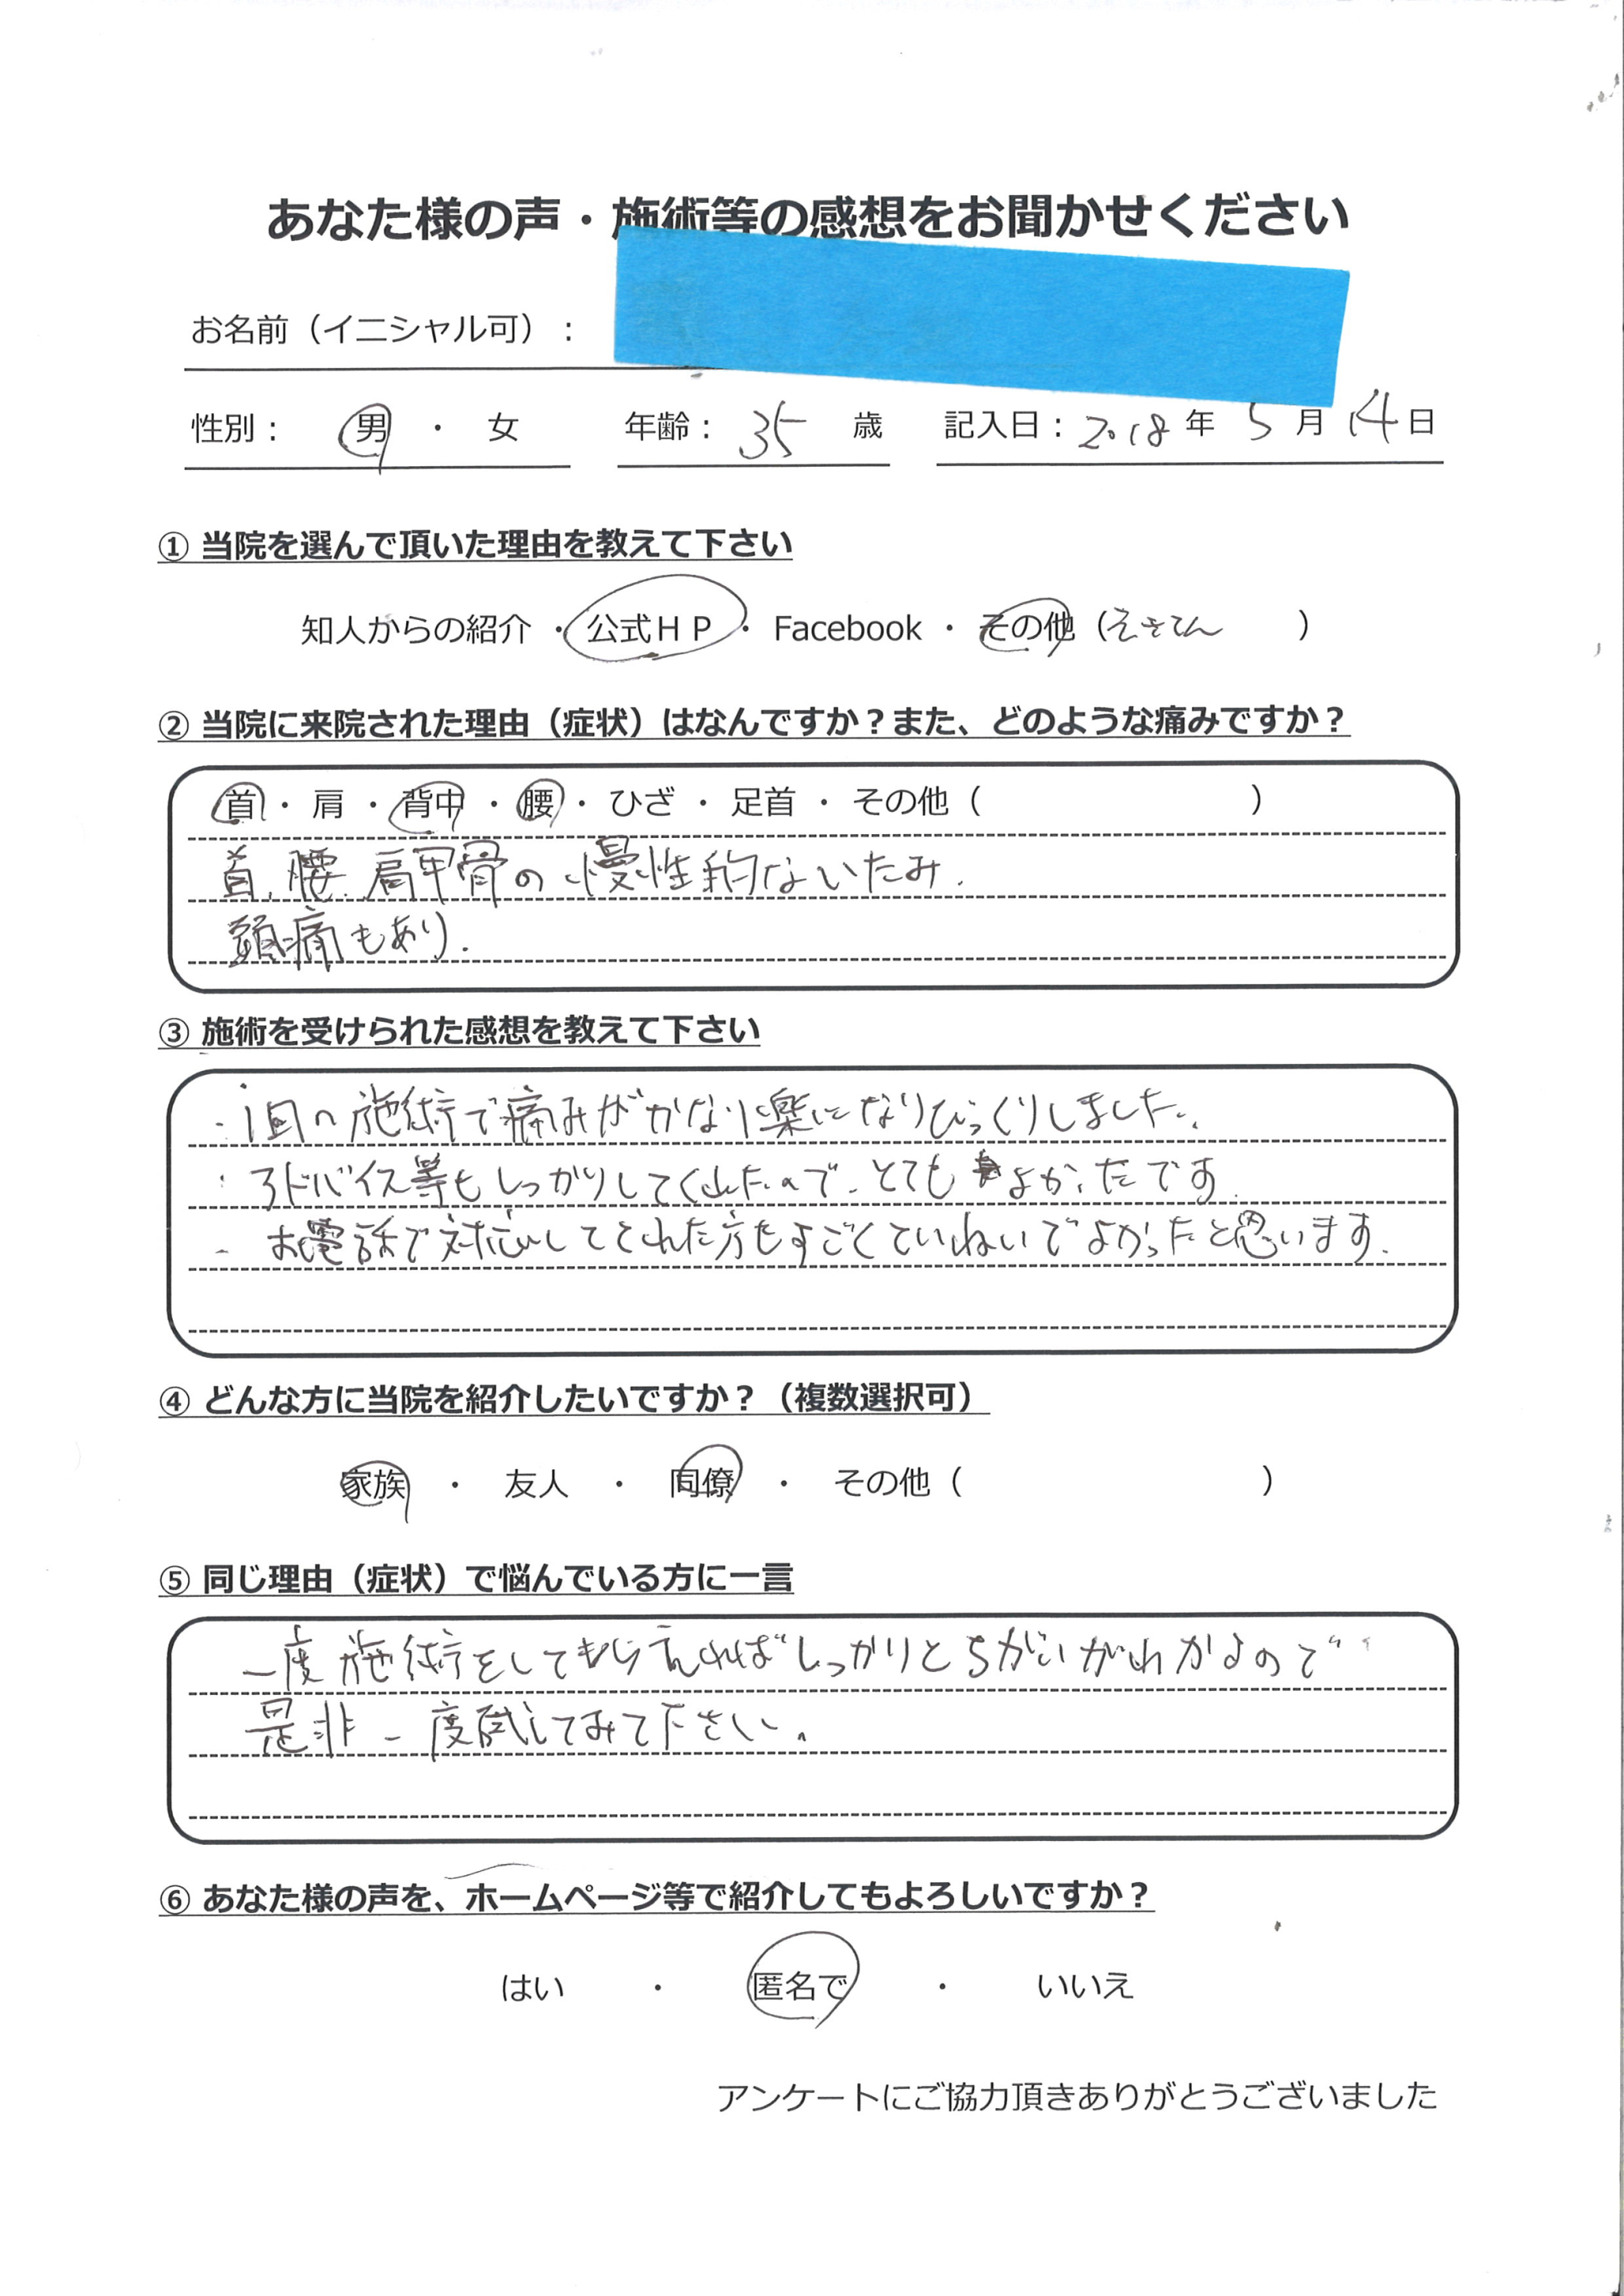 あなた様の声・施術等の感想をお聞かせください
お名前（イニシャル可）：
性別： 男 ・ 女 年齢： 35 歳 記入日：2018 年 5 月 14 日
① 当院を選んで頂いた理由を教えて下さい
知人からの紹介 ・ 公式ＨＰ ・ Facebook ・ その他（えきてん ）
② 当院に来院された理由（症状）はなんですか？また、どのような痛みですか？
首 ・ 肩 ・ 背中 ・ 腰 ・ ひざ ・ 足首 ・ その他（ ）
首、腰、肩甲骨の慢性的ないたみ.
頭痛もあり.
③ 施術を受けられた感想を教えて下さい
・1回の施術で痛みがかなり楽になりびっくりしました。
・アドバイス等もしっかりしてくれたので、とてもよかったです.
・お電話で対応してくれた方もすごくていねいでよかったと思います.
④ どんな方に当院を紹介したいですか？（複数選択可）
家族 ・ 友人 ・ 同僚 ・ その他（ ）
⑤ 同じ理由（症状）で悩んでいる方に一言
一度施術をしてもらえればしっかりとちがいがわかるので
是非一度試してみて下さい。
⑥ あなた様の声を、ホームページ等で紹介してもよろしいですか？
はい ・ 匿名で ・ いいえ
アンケートにご協力頂きありがとうございました